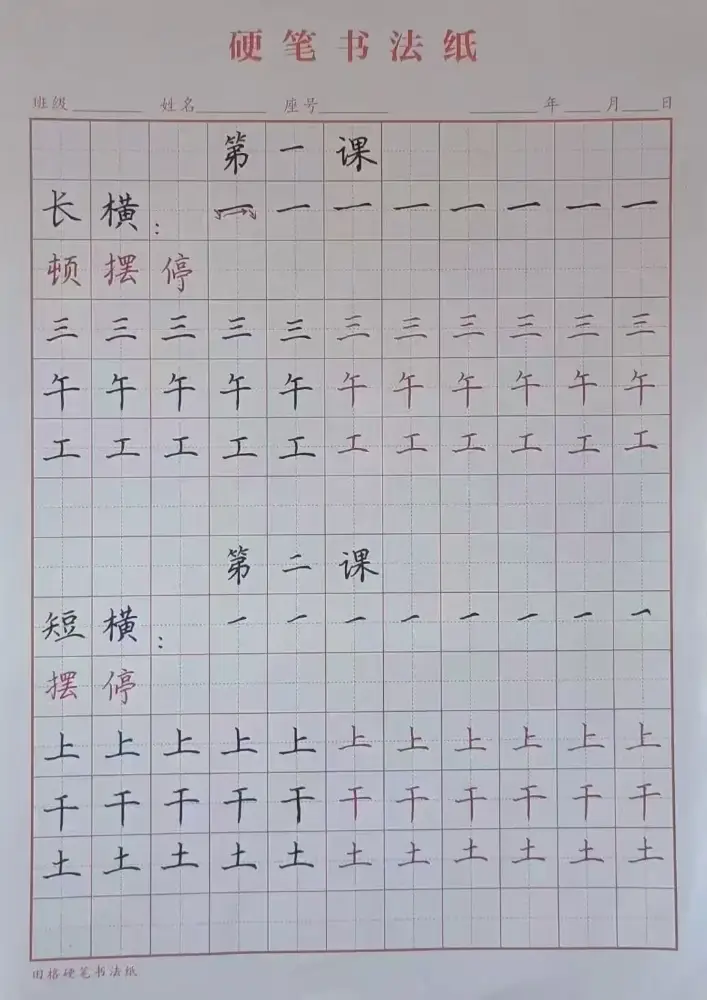 硬笔书法纸
班级 姓名 座号 年 月 日
第一课
长横： 一 一 一 一 一 一 一 一
顿摆停
三 三 三 三 三 三 三 三 三 三 三
午 午 午 午 午 午 午 午 午 午 午
工 工 工 工 工 工 工 工 工 工 工
第二课
短横： 一 一 一 一 一 一 一 一
摆停
上 上 上 上 上 上 上 上 上 上 上
干 干 干 干 干 干 干 干 干 干 干
土 土 土 土 土 土 土 土 土 土 土
田格硬笔书法纸